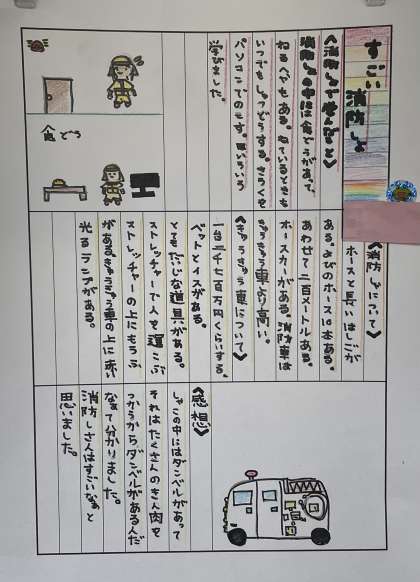 すごい消防しょ
《消防しょで学んだこと》
消防しょの中には食どうがあって、
ねるへやもある。ねているときも
いつでもしゅつどうする。きろくを
パソコンでのこす。
学びました。
食どう
《消防しゃについて》
ホースと長いはしごが
ある。よびのホース10本ある。
あわせて二百メートルある。
ホースカーがある。消防車は
きゅうきゅう車より高い。
《きゅうきゅう車について》
一台二千七百万円くらいする。
ベットとイスがある。
とてもだいじな道具がある。
ストレッチャーで人を運こぶ
ストレッチャーの上にもうふ
がある。きゅうきゅう車の上に赤い
光るランプがある。
《感想》
しょの中にはダンベルがあって
それはたくさんのきん肉を
つかうからダンベルがあるんだ
なぁて分かりました。
消防しさんはすごいなぁと
思いました。